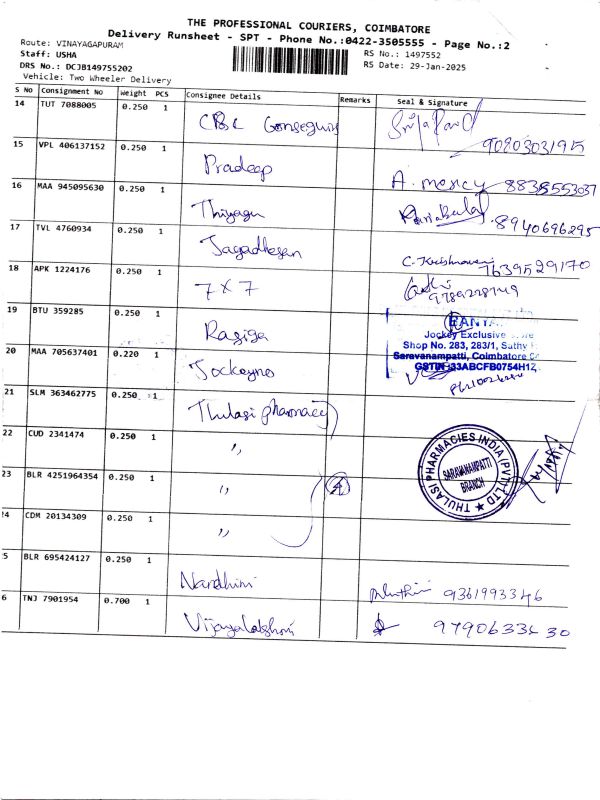 THE PROFESSIONAL COURIERS, COIMBATORE
Delivery Runsheet - SPT - Phone No.:0422-3505555 - Page No.:2
Route: VINAYAGAPURAM
Staff: USHA
DRS No.: DCJB149755202
Vehicle: Two Wheeler Delivery
RS No.: 1497552
RS Date: 29-Jan-2025
S No Consignment No Weight PCS Consignee Details Remarks Seal & Signature
14 TUT 7088005 0.250 1 CBSC
90803031915
15 VPL 406137152 0.250 1 Pradeep A. mercy 8838553037
16 MAA 945095630 0.250 1 Thiyagu 8940696295
17 TVL 4760934 0.250 1 Jagadhesan C. Krishnaveni 7639529170
18 APK 1224176 0.250 1 7 x 7
19 BTU 359285 0.250 1
Jockey Exclusive
Shop No. 283, 283/1, Sathy
Saravanampatti, Coimbatore
GSTIN :33ABCFB0754H1Z
20 MAA 705637401 0.220 1
21 SLM 363462775 0.250 1 Thulasi pharmacy
22 CUD 2341474 0.250 1 "
23 BLR 4251964354 0.250 1 " 4
24 CDM 20134309 0.250 1 "
THULASI PHARMACIES INDIA (PVT) LTD
SARAVANAMPATTI
BRANCH
5 BLR 695424127 0.250 1 Nandhini 9361993346
6 TNJ 7901954 0.700 1 Vijayalakshmi 9790633430